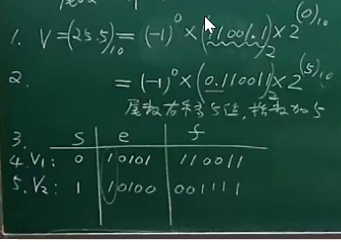 1. V=(25.5)₁₀ = (-1)⁰ × (11001.1)₂ × 2^(0)₁₀
2. = (-1)⁰ × (0.110011)₂ × 2^(5)₁₀
尾数右移5位, 指数加5
3. S e f
4. V₁: 0 10101 110011
5. V₂: 1 10100 001111